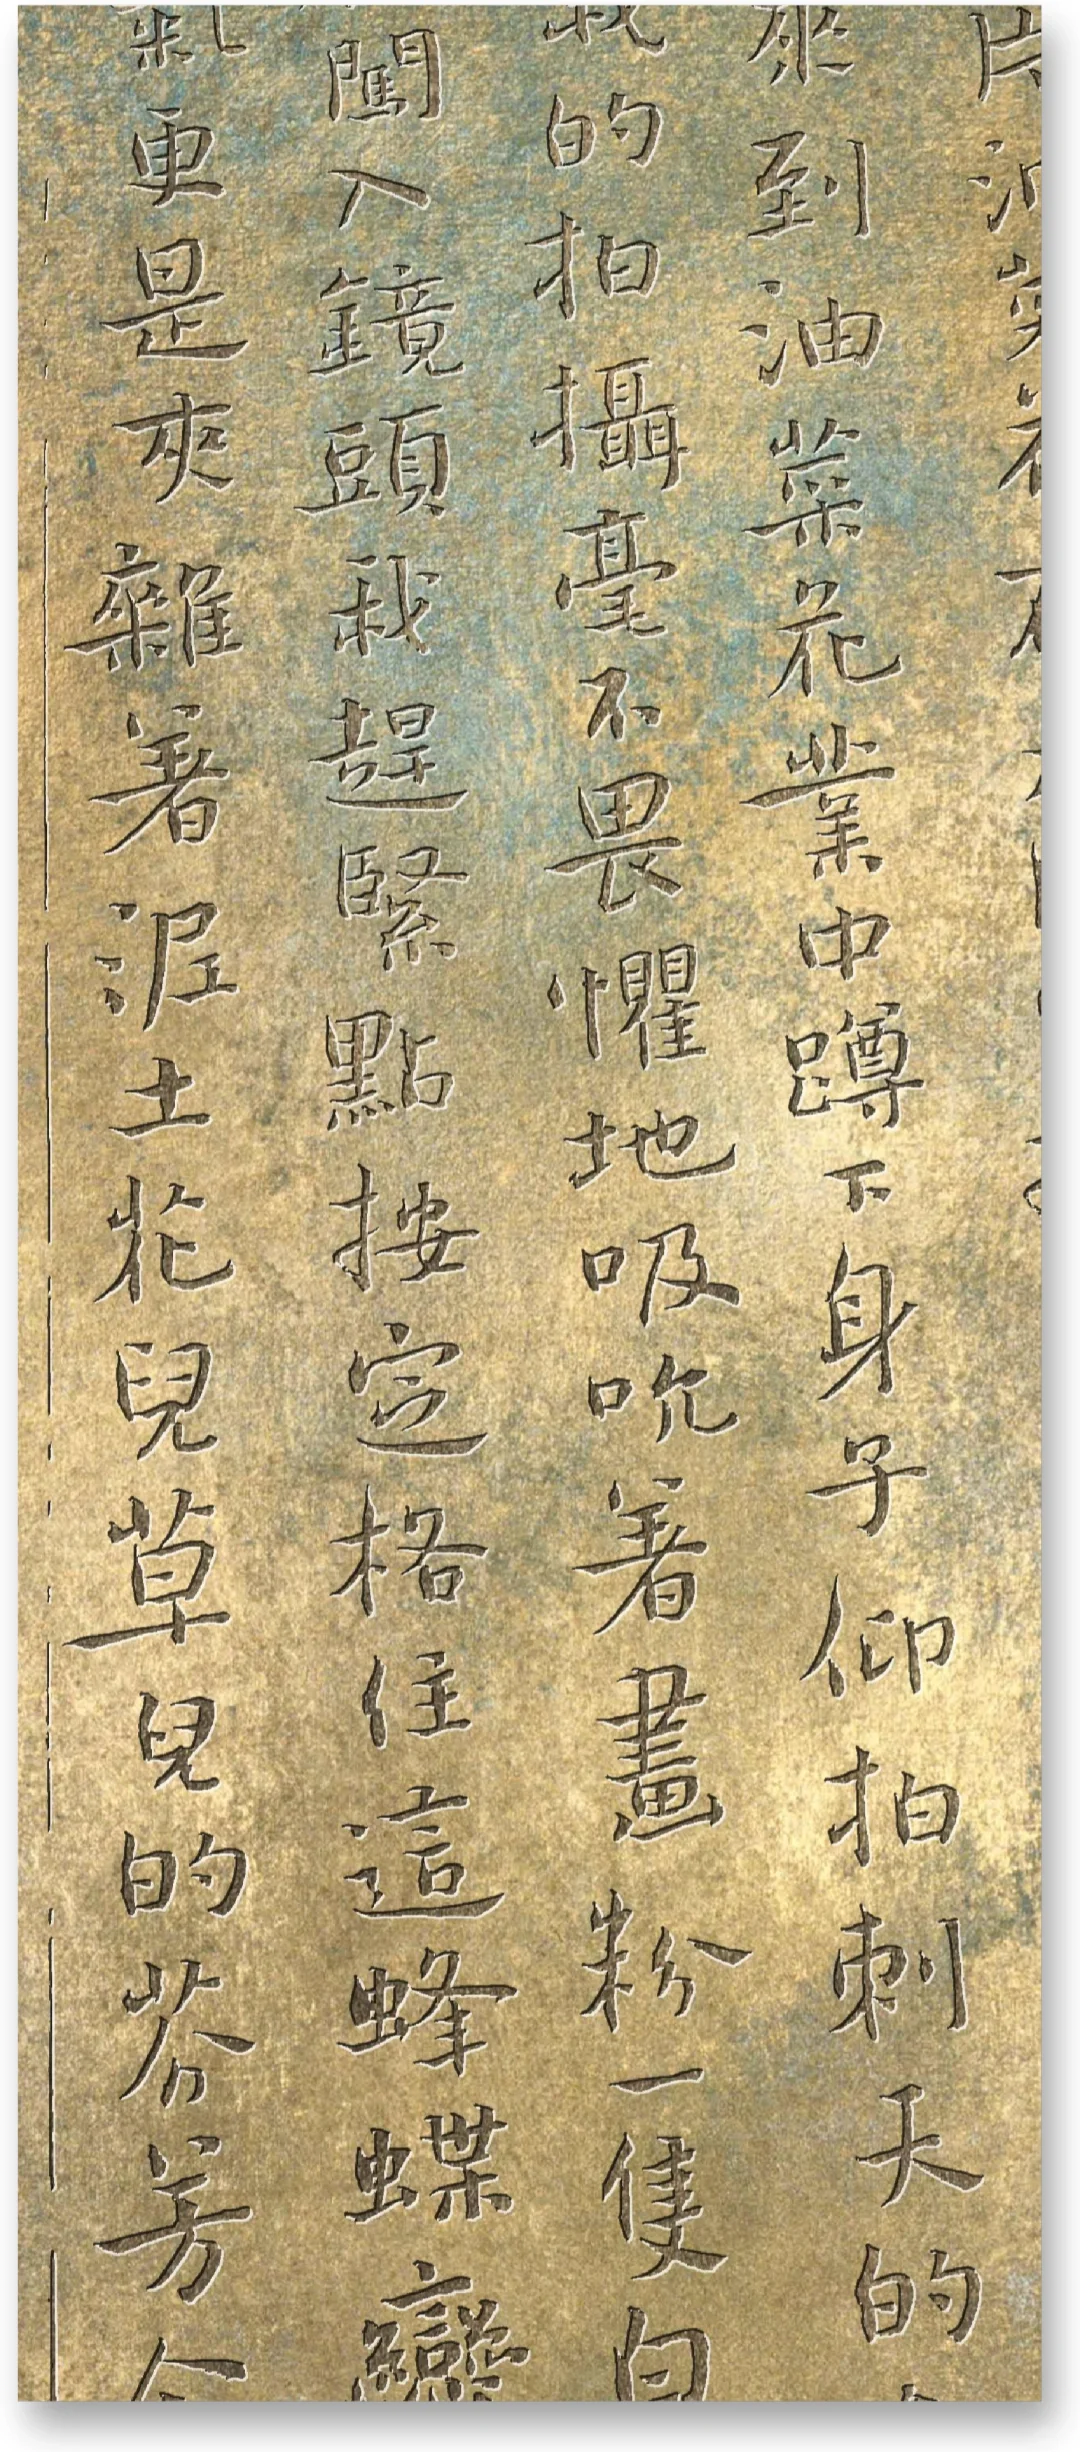 來到油菜花業中蹲下身子仰拍刺天的
我的拍攝毫不畏懼地吸吮著畫粉一隻白
闖入鏡頭我趕緊點按定格住這蜂蝶戀
氣更是夾雜著泥土花兒草兒的芬芳